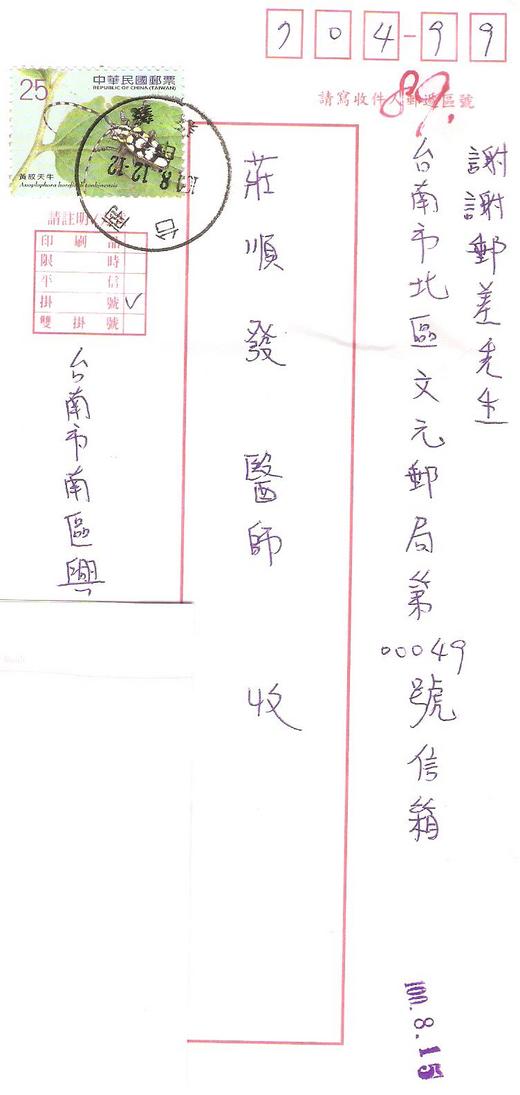 704-99
請寫收件人郵遞區號
89.
謝謝郵差先生
台南市北區文元郵局第00049號信箱
莊順發醫師 收
25
中華民國郵票
REPUBLIC OF CHINA (TAIWAN)
黃紋天牛
台南
8.12-12
請註明
印刷品
限時
平信
掛號 ✓
雙掛號
台南市南區興
100.8.15